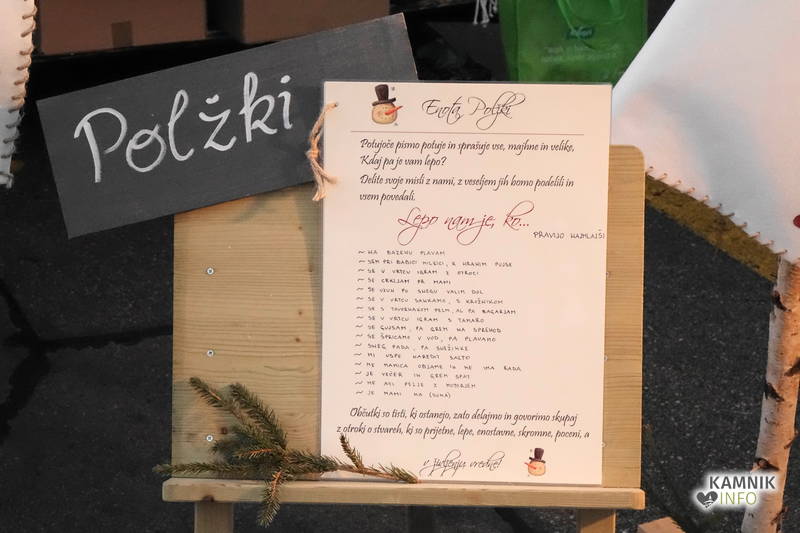 Polžki
Enota Polžki
Potujoče pismo potuje in sprašuje vse, majhne in velike,
Kdaj pa je vam lepo?
Delite svoje misli z nami, z veseljem jih bomo podelili in
vsem povedali.
Lepo nam je, ko...
PRAVIJO NAJMLAJŠI
~ NA BAZENU PLAVAM
~ SEM PRI BABICI MILEJCI, K HRANIM PUJSE
~ SE V VRTCU IGRAM Z OTROCI
~ SE CRKLJAM PR MAMI
~ SE UZUN PO SNEGU VALIM DOL
~ SE V VRTCU SANKAMO, S KROŽNIKOM
~ SE S TOVORNAKOM PELM, AL PA BAGARJAM
~ SE V VRTCU IGRAM S TAMARO
~ SE GUGAM, PA GREM NA SPREHOD
~ SE ŠPRICAMO V VOD, PA PLAVAMO
~ SNEG PADA, PA SNEŽINKE
~ MI USPE NAREDIT SALTO
~ ME MAMICA OBJAME IN ME IMA RADA
~ JE VEČER IN GREM SPAT
~ ME ATI PELJE Z MOTORJEM
~ JE MAMI NA
Občutki so tisti, ki ostanejo, zato delajmo in govorimo skupaj
z otroki o stvareh, ki so prijetne, lepe, enostavne, skromne, poceni, a
v življenju vredne!
KAMNIK
INFO